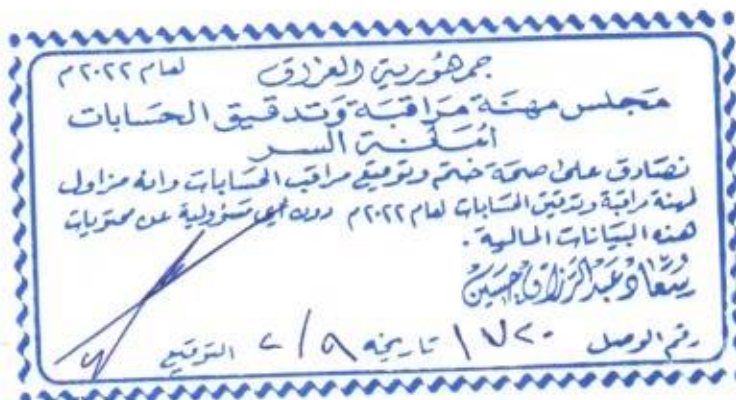 جمهورية العراق لعام ٢٠٢٢ م
مجلس مهنة مراقبة وتدقيق الحسابات
أمانة السر
نصادق على صحة ختم وتوقيع مراقب الحسابات وانه مزاول
لمهنة مراقبة وتدقيق الحسابات لعام ٢٠٢٢ م دون اي مسؤولية عن محتويات
هذه البيانات المالية .
سعاد عبد الرزاق حسين
رقم الوصل ١٧٢٠ تاريخه ٩ / ٢ التوقيع